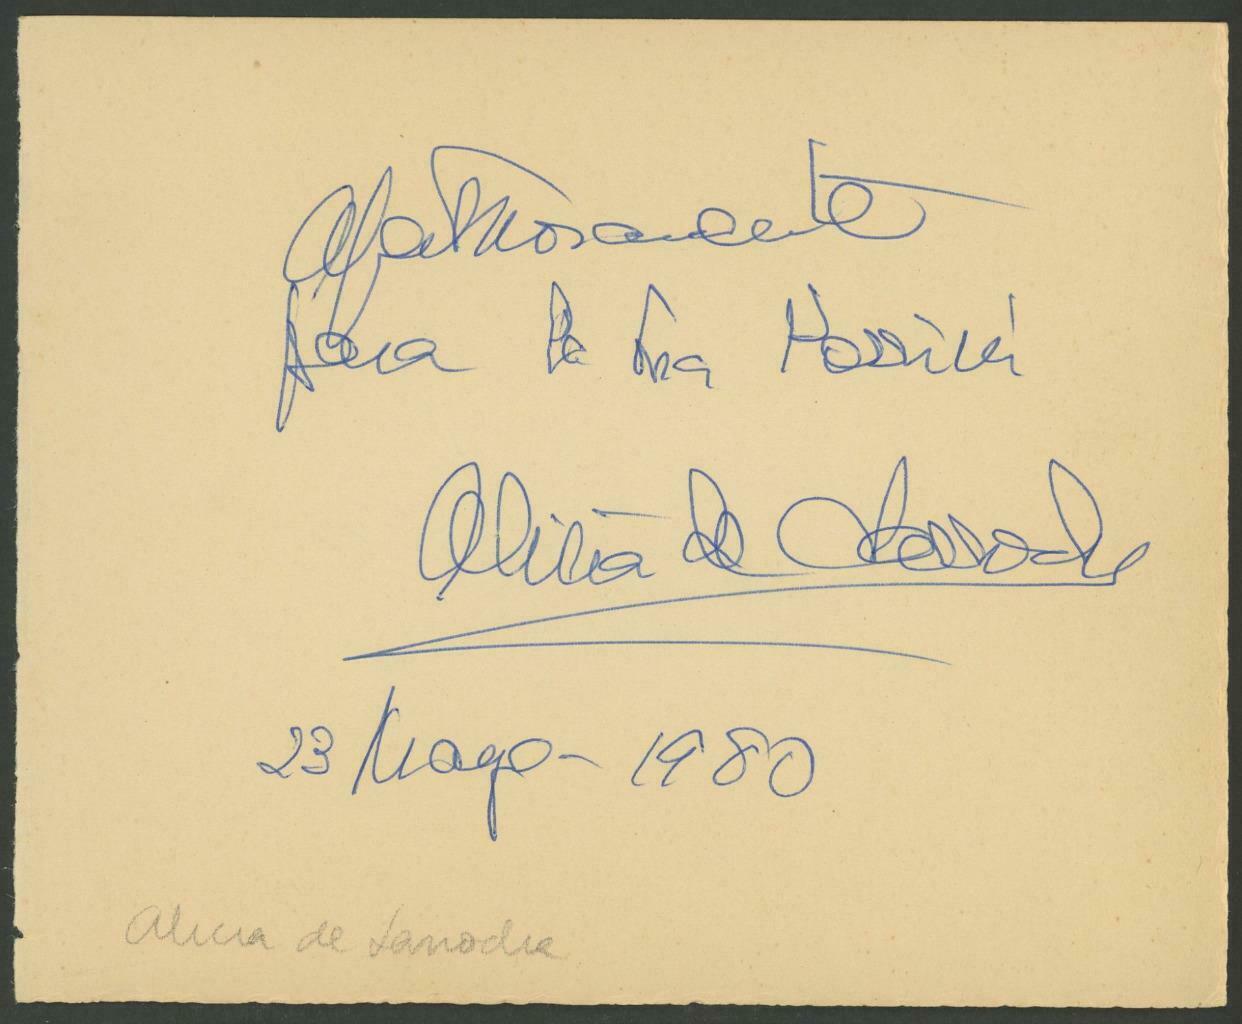 Afectuosamente
para la Sra Rossini
Alicia de Larrocha
23 Mayo - 1980
Alicia de Larrocha